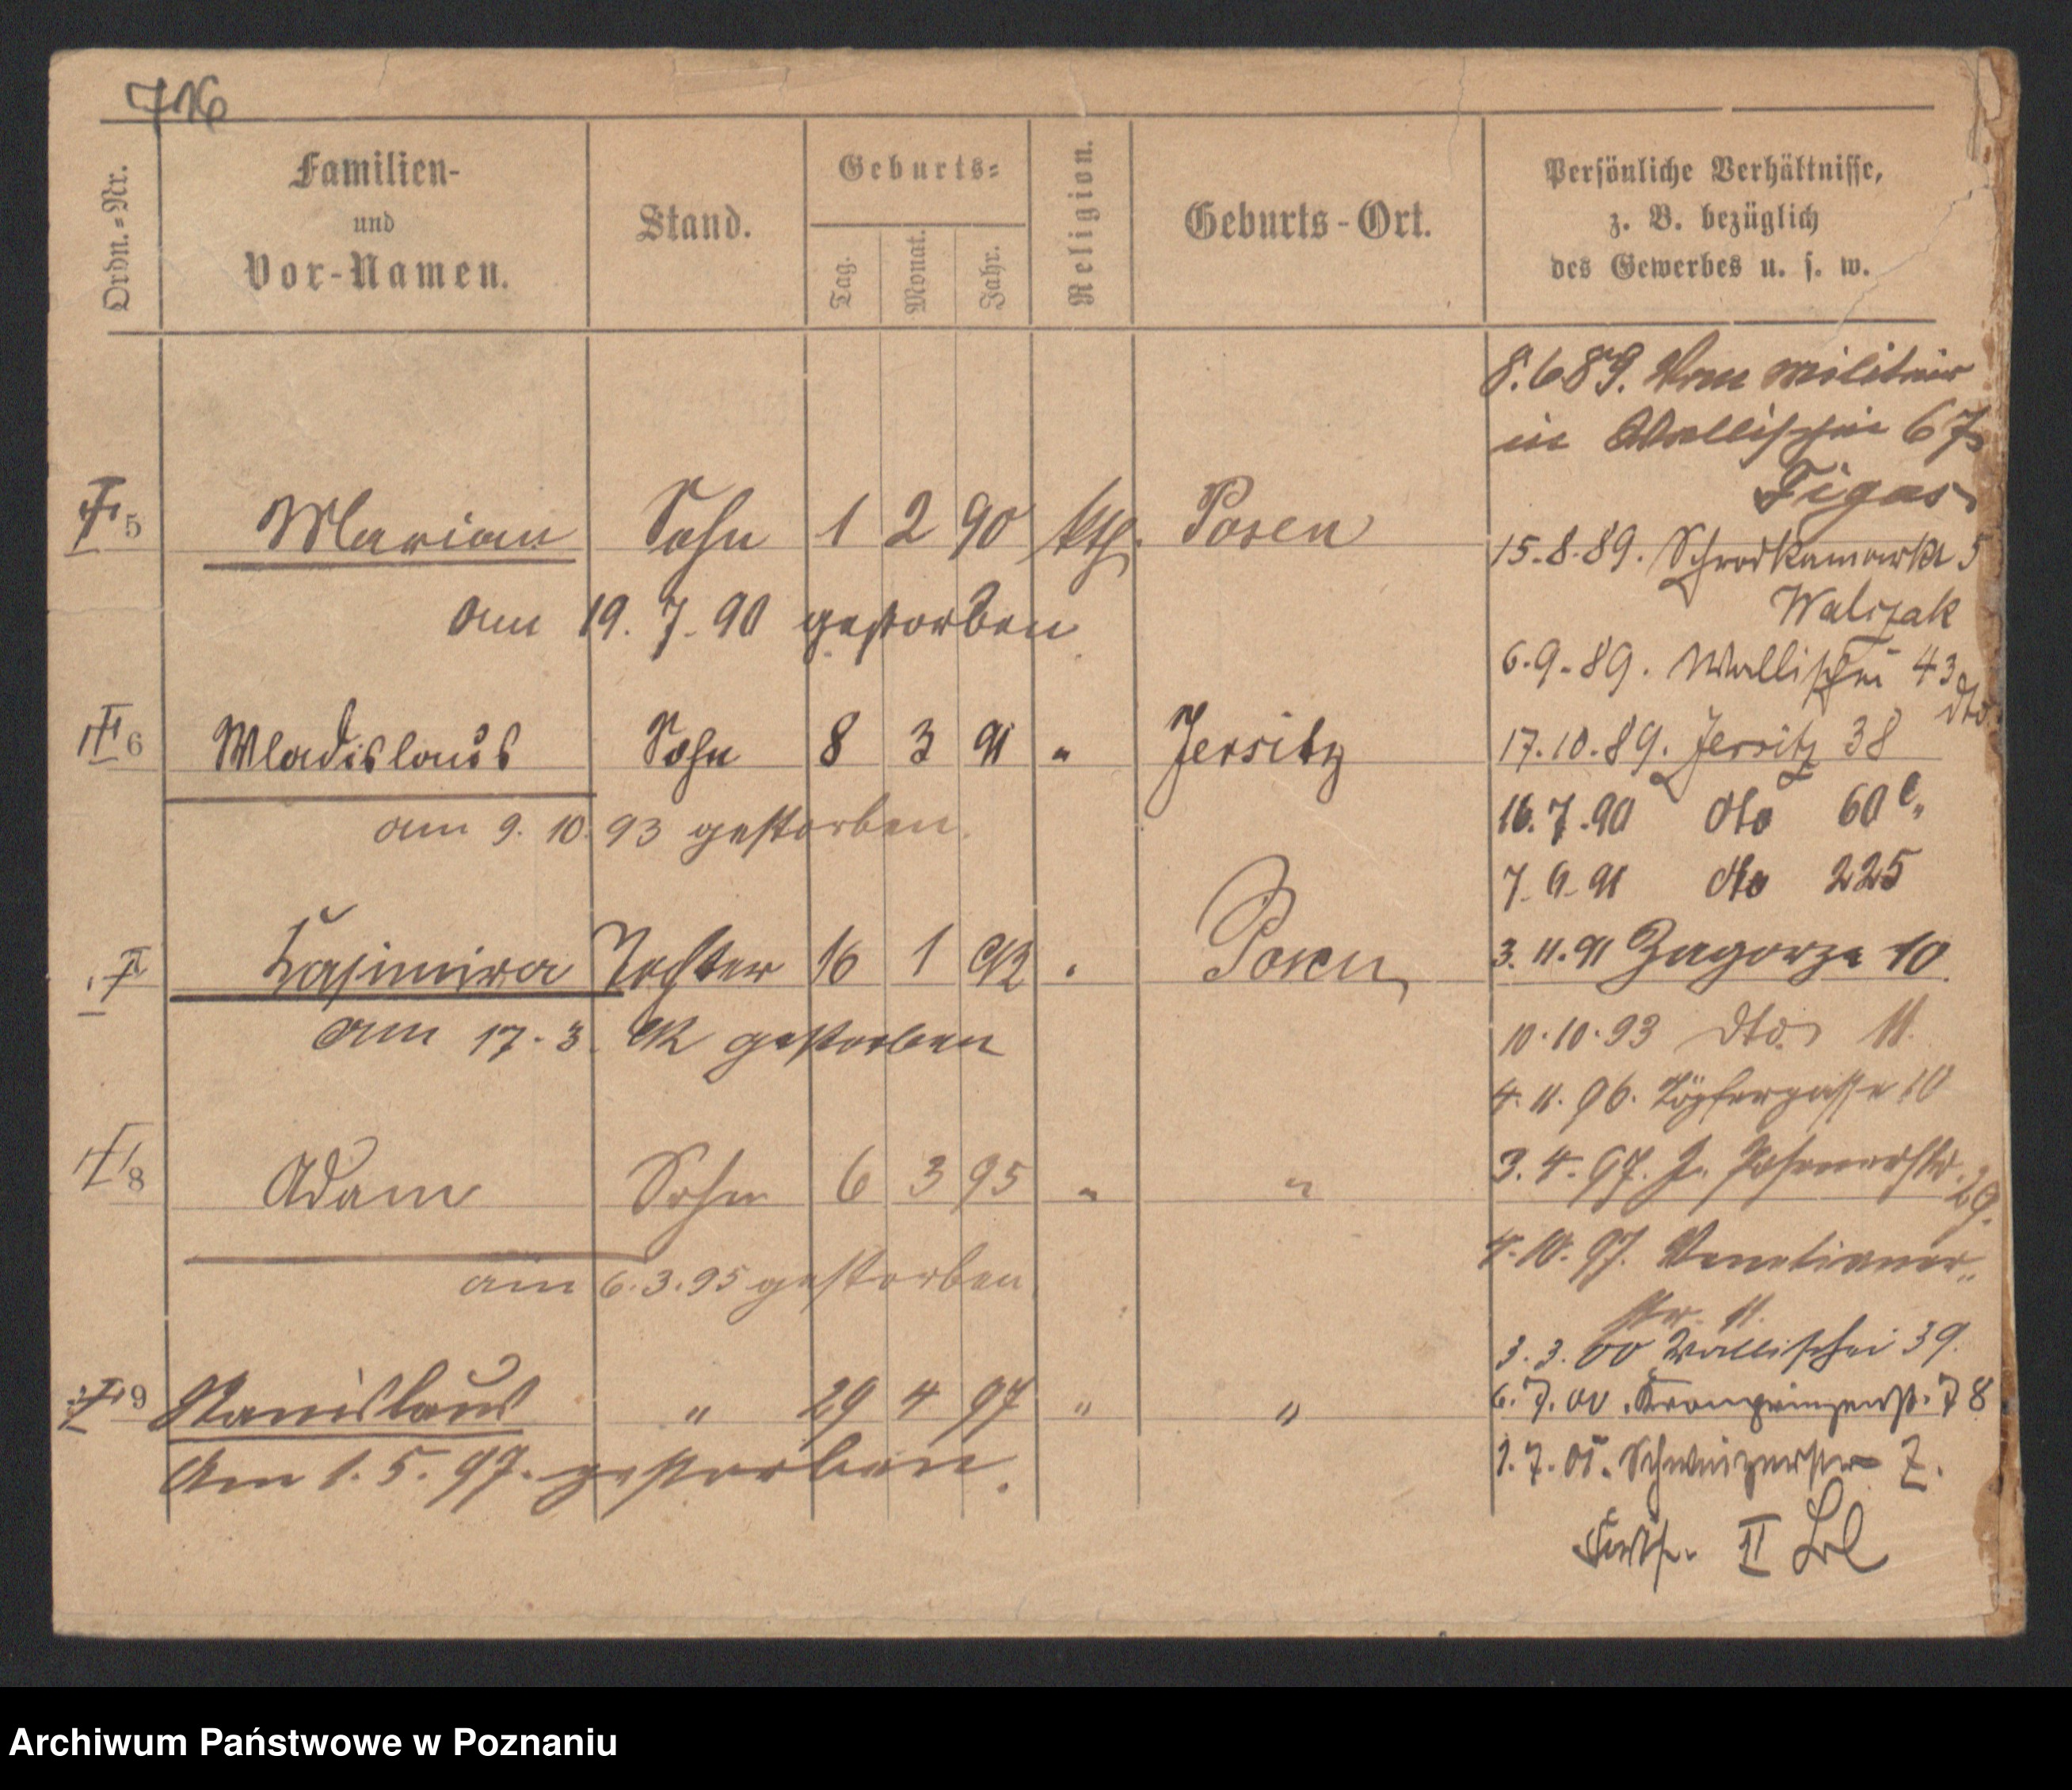 716
Ordn.-Nr.
Familien-
und
Vor-Namen.
Stand.
Geburts-
Tag.
Monat.
Jahr.
Religion.
Geburts-Ort.
Persönliche Verhältnisse,
z. B. bezüglich
des Gewerbes u. s. w.
8.6 89. Vom militär
in Wallischei 67
Figas
5 Marian Sohn 1 2 90 kth. Posen
15.8.89. Schrodkamarkt 5
Walczak
am 19. 7. 90 gestorben
6.9.89. Wallischei 43
dto.
6 Wladislaus Sohn 8 3 91 " Jersitz
17.10.89. Jersitz 38
16.7.90 dto 60
am 9. 10. 93 gestorben.
7.6.91 dto 225
Kasimira Tochter 16 1 92 " Posen
3.11.91 Zagorze 10
am 17. 3. 92 gestorben
10.10.93 dto. 11.
4.11.96. Töpfergasse 10
8 Adam Sohn 6 3 95 " "
3.4.97. Posenerstr.
29.
am 6.3.95 gestorben
4.10.97. Venetianer-
str. 11.
3.3.00 Wallischei 39.
9 Stanislaus " 29 4 97 " "
6.7.00. Kronprinzenst. 78
Am 1. 5. 97. gestorben.
1.7.01. Schweizerstr 7.
Forts. II
Archiwum Państwowe w Poznaniu